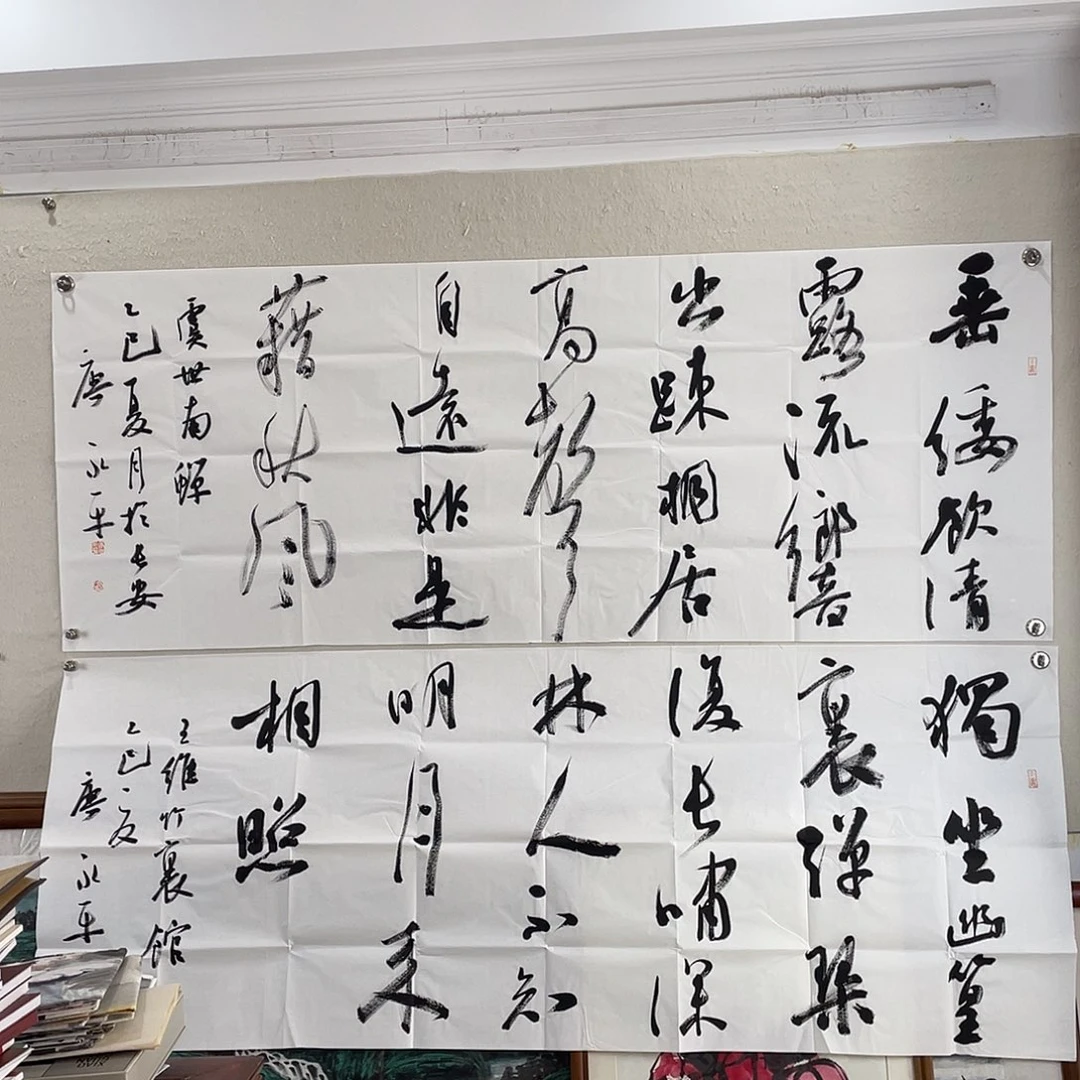 垂緌飲清
露流響
出踈桐居
高聲
自遠非是
藉秋風
虞世南蟬
乙巳夏月於長安
唐永平
獨坐幽篁
裏彈琹
復長嘯深
林人不知
明月来
相照
王維竹裏館
乙巳夏
唐永平